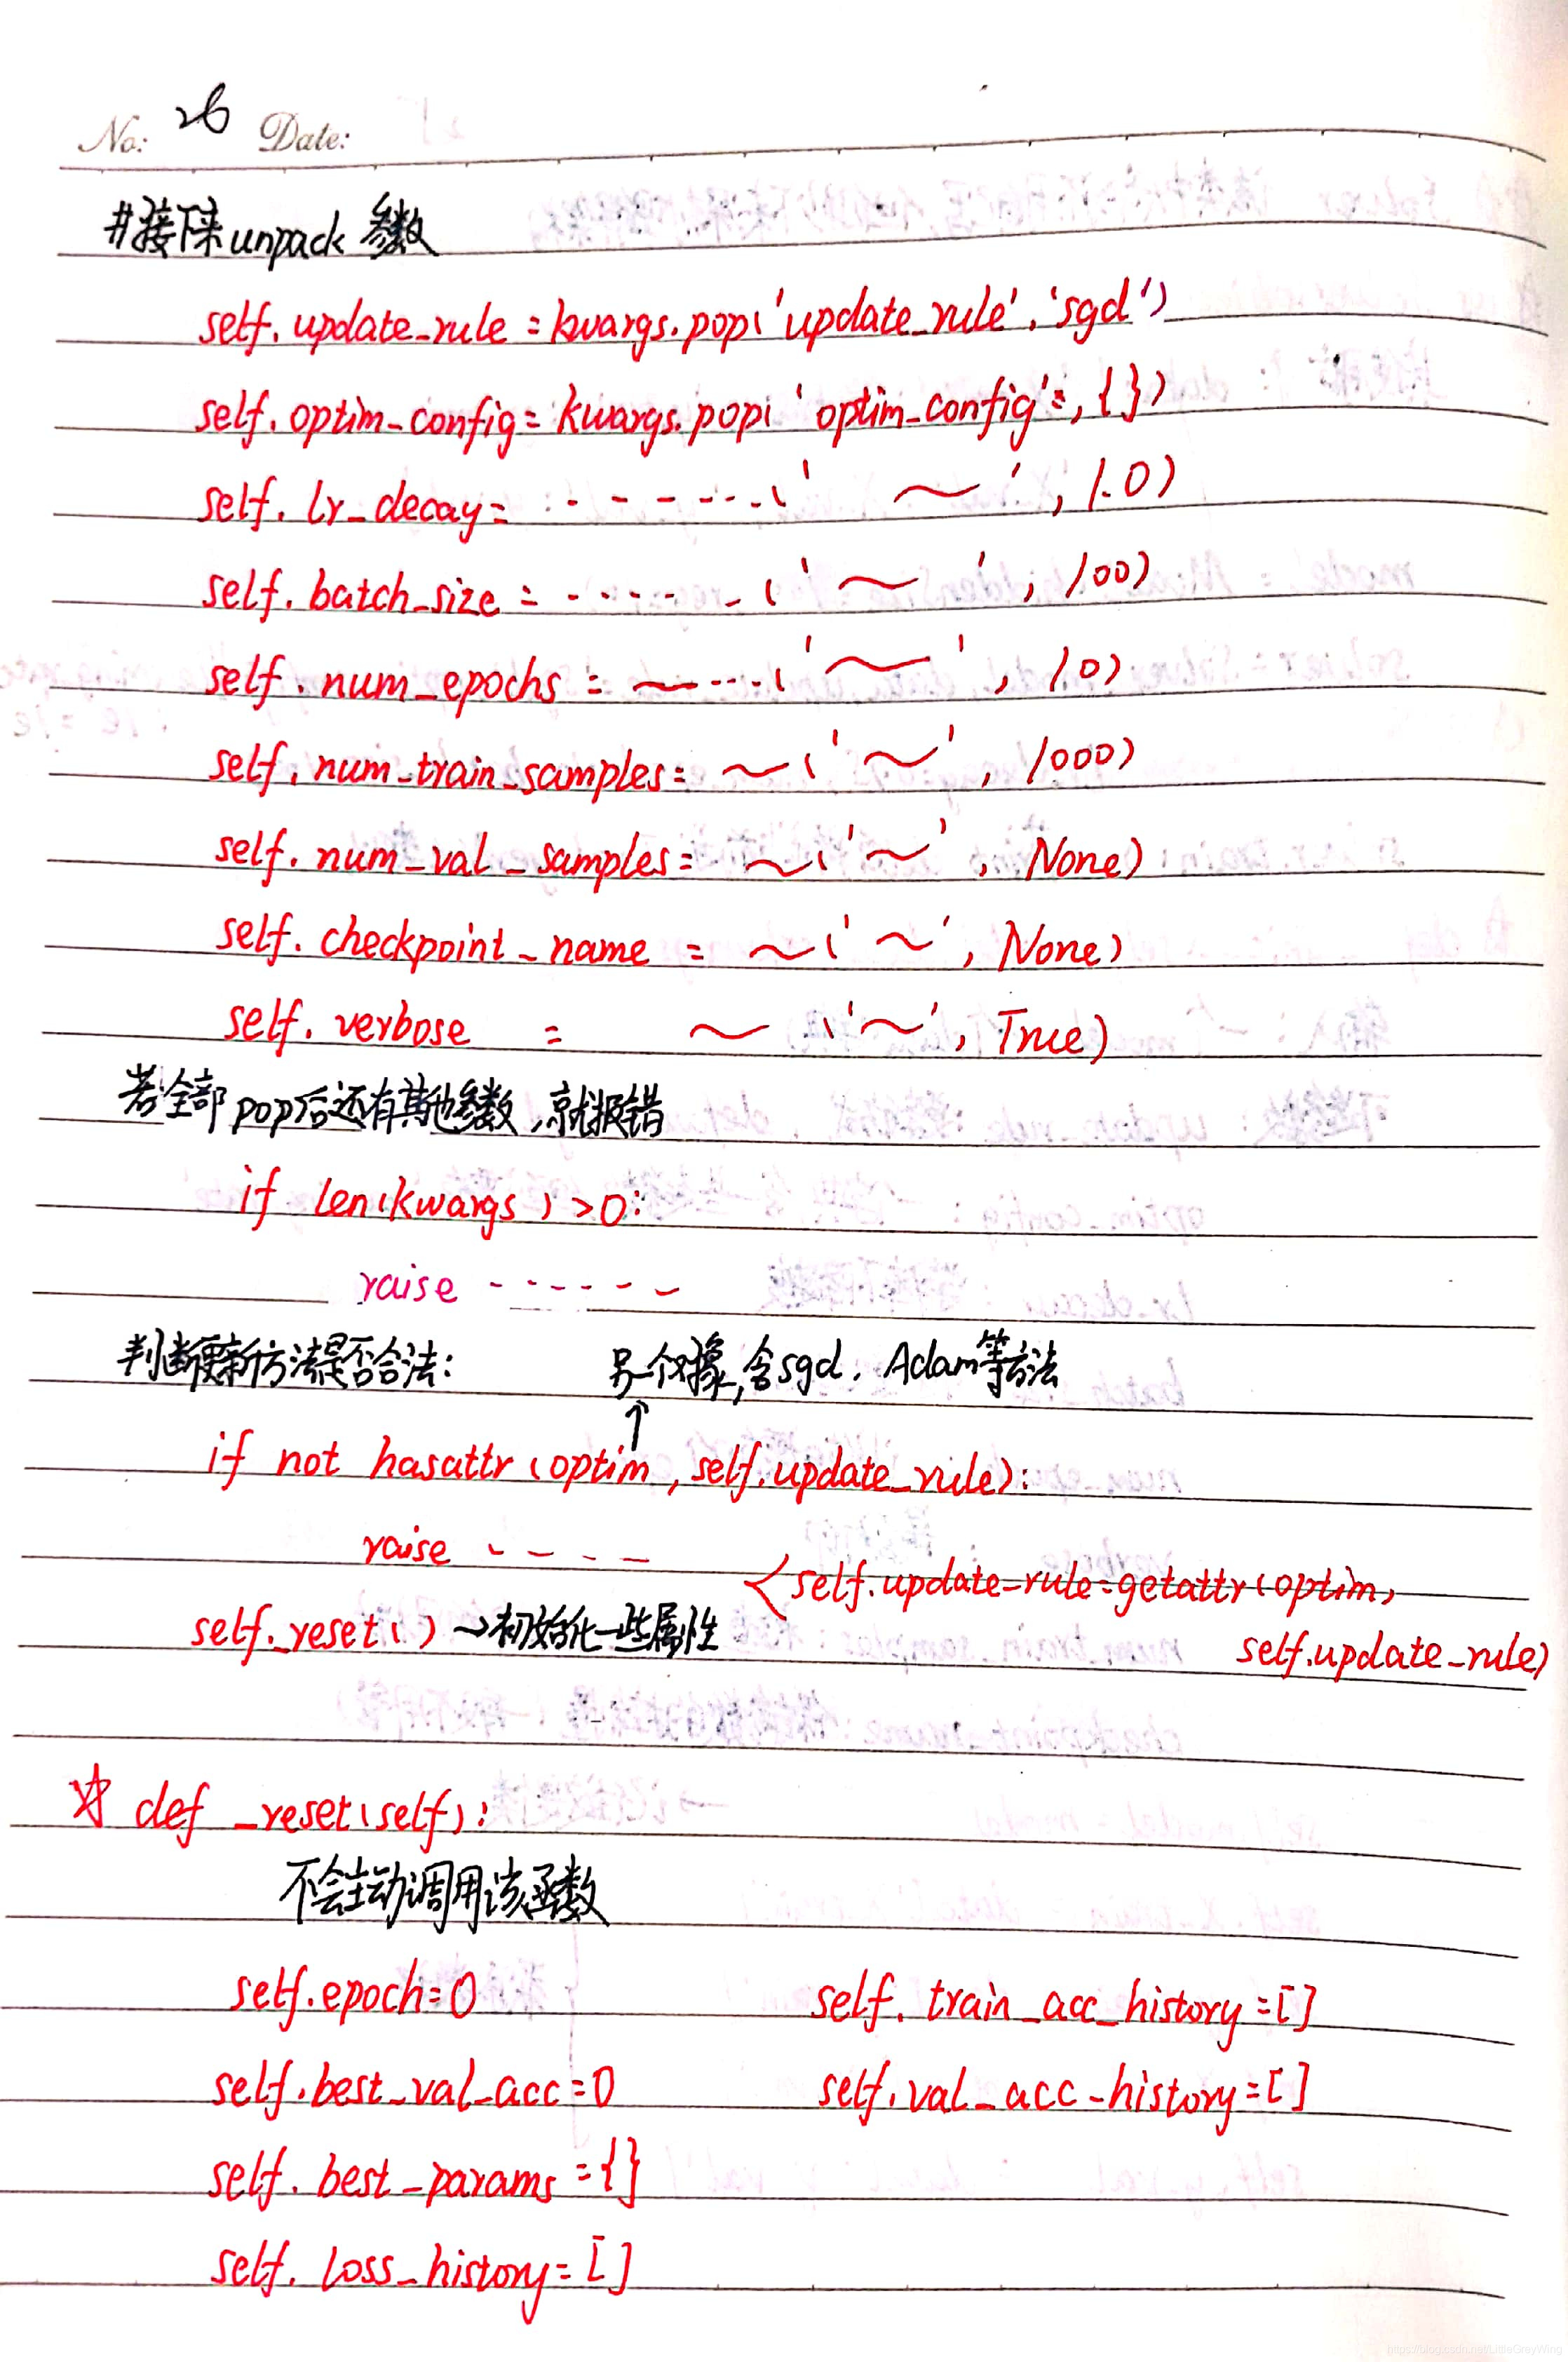 No: 26 Date:
#接下来unpack 参数
self.update_rule = kwargs.pop('update_rule', 'sgd')
self.optim_config = kwargs.pop('optim_config'=, {})
self.lr_decay = - - - - - - - - ('~', 1.0)
self.batch_size = - - - - - ('~', 100)
self.num_epochs = ~----('~', 10)
self.num_train_samples = ~('~', 1000)
self.num_val_samples = ~('~', None)
self.checkpoint_name = ~('~', None)
self.verbose = ~('~', True)
若全部pop后还有其他参数,就报错
if len(kwargs)>0:
raise - - - - - -
判断更新方法是否合法: 另一个对象,含sgd, Adam等方法
↑
if not hasattr(optim, self.update_rule):
raise - - - -
<self.update_rule=getattr(optim,
self._reset() →初始化一些属性 self.update_rule)
☆ def _reset(self):
不会主动调用该函数
self.epoch=0 self.train_acc_history=[]
self.best_val_acc=0 self.val_acc_history=[]
self.best_params={}
self.loss_history=[]
https://blog.csdn.net/LittleGreyWing